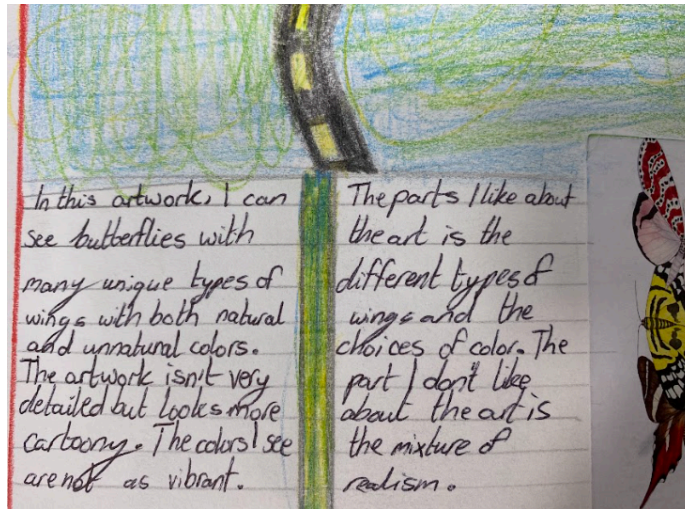 In this artwork, I can
see butterflies with
many unique types of
wings with both natural
and unnatural colors.
The artwork isn't very
detailed but looks more
cartoony. The colors I see
are not as vibrant.
The parts I like about
the art is the
different types of
wings and the
choices of color. The
part I don't like
about the art is
the mixture of
realism.